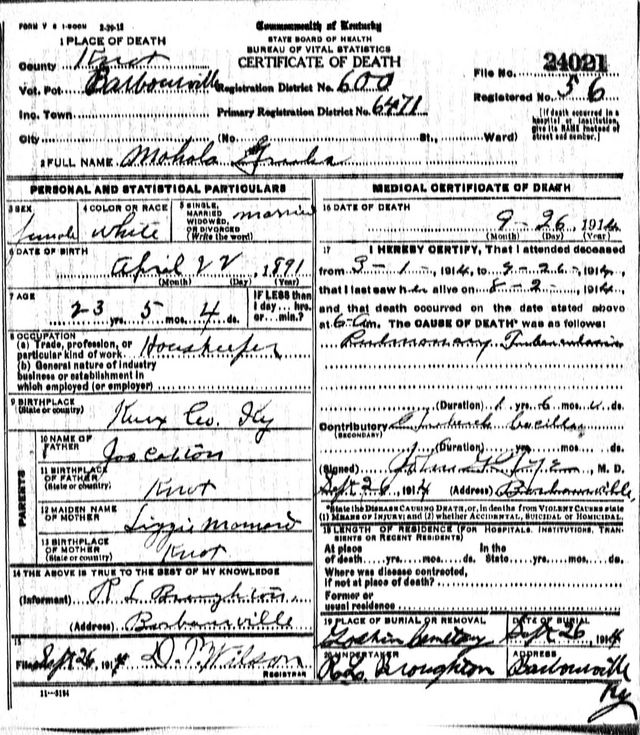 FORM V S 1-500M 3-29-13
Commonwealth of Kentucky
STATE BOARD OF HEALTH
BUREAU OF VITAL STATISTICS
CERTIFICATE OF DEATH
1 PLACE OF DEATH
County Knox
Vot. Pct. Barbourville Registration District No. 600
File No. 24021
Inc. Town Primary Registration District No. 6471
Registered No. 56
City (No. St., Ward)
[If death occurred in a hospital or institution, give its NAME instead of street and number.]
2 FULL NAME
PERSONAL AND STATISTICAL PARTICULARS
3 SEX female
4 COLOR OR RACE White
5 SINGLE, MARRIED WIDOWED, OR DIVORCED (Write the word) married
6 DATE OF BIRTH
April 22, 1891
(Month) (Day) (Year)
7 AGE
23 yrs. 5 mos. 4 ds.
IF LESS than 1 day... hrs. or... min.?
8 OCCUPATION
(a) Trade, profession, or particular kind of work Housekeeper
(b) General nature of industry
business or establishment in
which employed (or employer)
9 BIRTHPLACE
(State or country)
Knox Co. Ky
PARENTS
10 NAME OF FATHER
11 BIRTHPLACE OF FATHER (State or country)
Knox
12 MAIDEN NAME OF MOTHER Lizzie
13 BIRTHPLACE OF MOTHER (State or country) Knox
14 THE ABOVE IS TRUE TO THE BEST OF MY KNOWLEDGE
(Informant) R L Broughton
(Address) Barbourville
15
Filed Sept 26, 1914 D. P. Wilson
REGISTRAR
11-3184
MEDICAL CERTIFICATE OF DEATH
16 DATE OF DEATH
9 - 26, 1914
(Month) (Day) (Year)
17 I HEREBY CERTIFY, That I attended deceased
from 3-1-, 1914, to 9-26-, 1914,
that I last saw her alive on 8-2-, 1914,
and that death occurred on the date stated above
at 6 am. The CAUSE OF DEATH* was as follows:
Pulmonary Tuberculosis
(Duration) 1 yrs. 6 mos. ds.
Contributory
(SECONDARY)
(Duration) yrs. mos. ds.
(Signed) M. D.
Sept 26, 1914 (Address) Barbourville
*State the DISEASE CAUSING DEATH, or, in deaths from VIOLENT CAUSES state
(1) MEANS OF INJURY; and (2) whether ACCIDENTAL, SUICIDAL or HOMICIDAL.
18 LENGTH OF RESIDENCE (FOR HOSPITALS, INSTITUTIONS, TRANSIENTS OR RECENT RESIDENTS)
At place of death yrs. mos. ds. In the State yrs. mos. ds.
Where was disease contracted,
if not at place of death?
Former or
usual residence
19 PLACE OF BURIAL OR REMOVAL
Cemetery
DATE OF BURIAL
Sept 26, 1914
20 UNDERTAKER
R. L. Broughton
ADDRESS
Barbourville
Ky